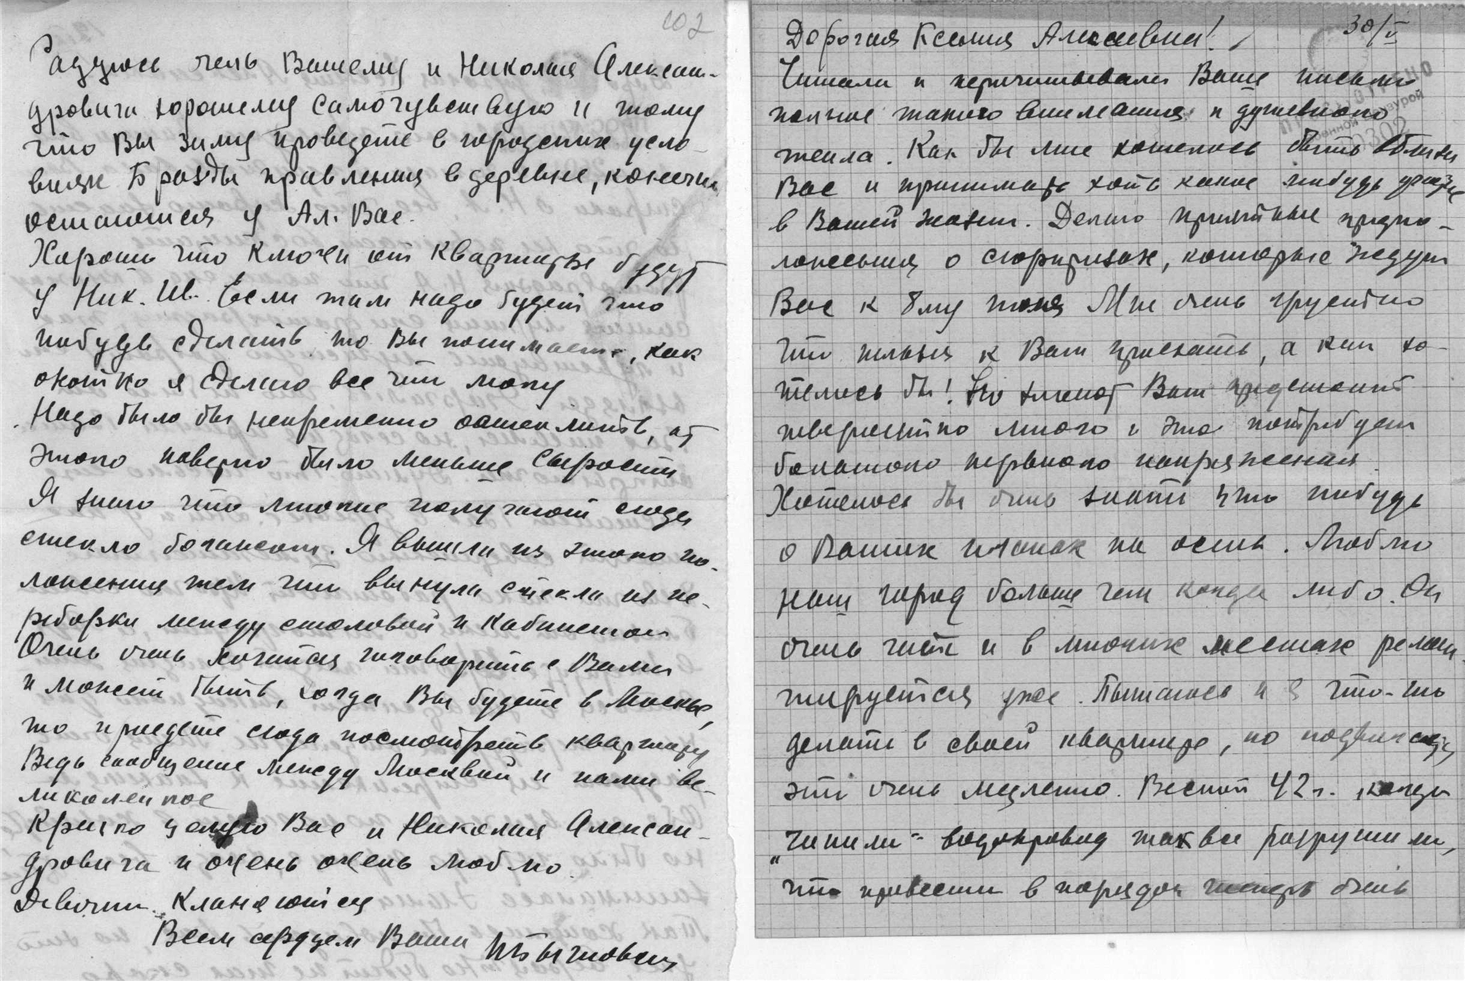 102
Радуюсь очень Вашему и Николая Алексан-
дровича хорошему самочувствую и тому
что Вы зиму проведете в городских усло-
виях Бразды правления в деревне, конечно
останются у Ал. Вас.
Хорошо что ключи от квартиры будут
у Ник. Ив. Если там надо будет что
нибудь сделать то Вы понимаете, как
охотно я сделаю все что могу
Надо было бы непременно остеклить, от
этого наверно было меньше сырости
Я знаю что многие получают сюда
стекло багажем. Я вышла из этого по-
ложения тем что вынула стекла из пе-
реборки между столовой и кабинетом
Очень очень хочется поговорить с Вами
и может быть, когда Вы будете в Москве,
то приедете сюда посмотреть квартиру
Ведь сообщение между Москвой и нами ве-
ликолепное
Крепко целую Вас и Николая Алексан-
дровича и очень очень люблю.
Девочки кланяются
Всем сердцем Ваша
30/V
Дорогая Ксения Алексеевна!
Читали и перечитывали Ваше письмо
полное такого внимания и душевного
тепла. Как бы мне хотелось быть вблизи
Вас и принимать хоть какое нибудь участие
в Вашей жизни. Делаю приятные предпо-
ложения о сюрпризах, которые ждут
Вас к 8му июня Мне очень грустно
что нельзя к Вам приехать, а как хо-
телось бы! Но хлопот Вам предстоит
невероятно много и это потребует
большого нервного напряжения.
Хотелось бы очень знать что нибудь
о Ваших планах на осень. Люблю
наш город больше чем когда либо. Он
очень чист и в многих местах ремон-
тируется уже. Пытаюсь и я что-то
делать в своей квартире, но подвигается
это очень медленно. Весной 42 г., когда
"чинили" водопровод так все разрушили,
что привести в порядок теперь очень